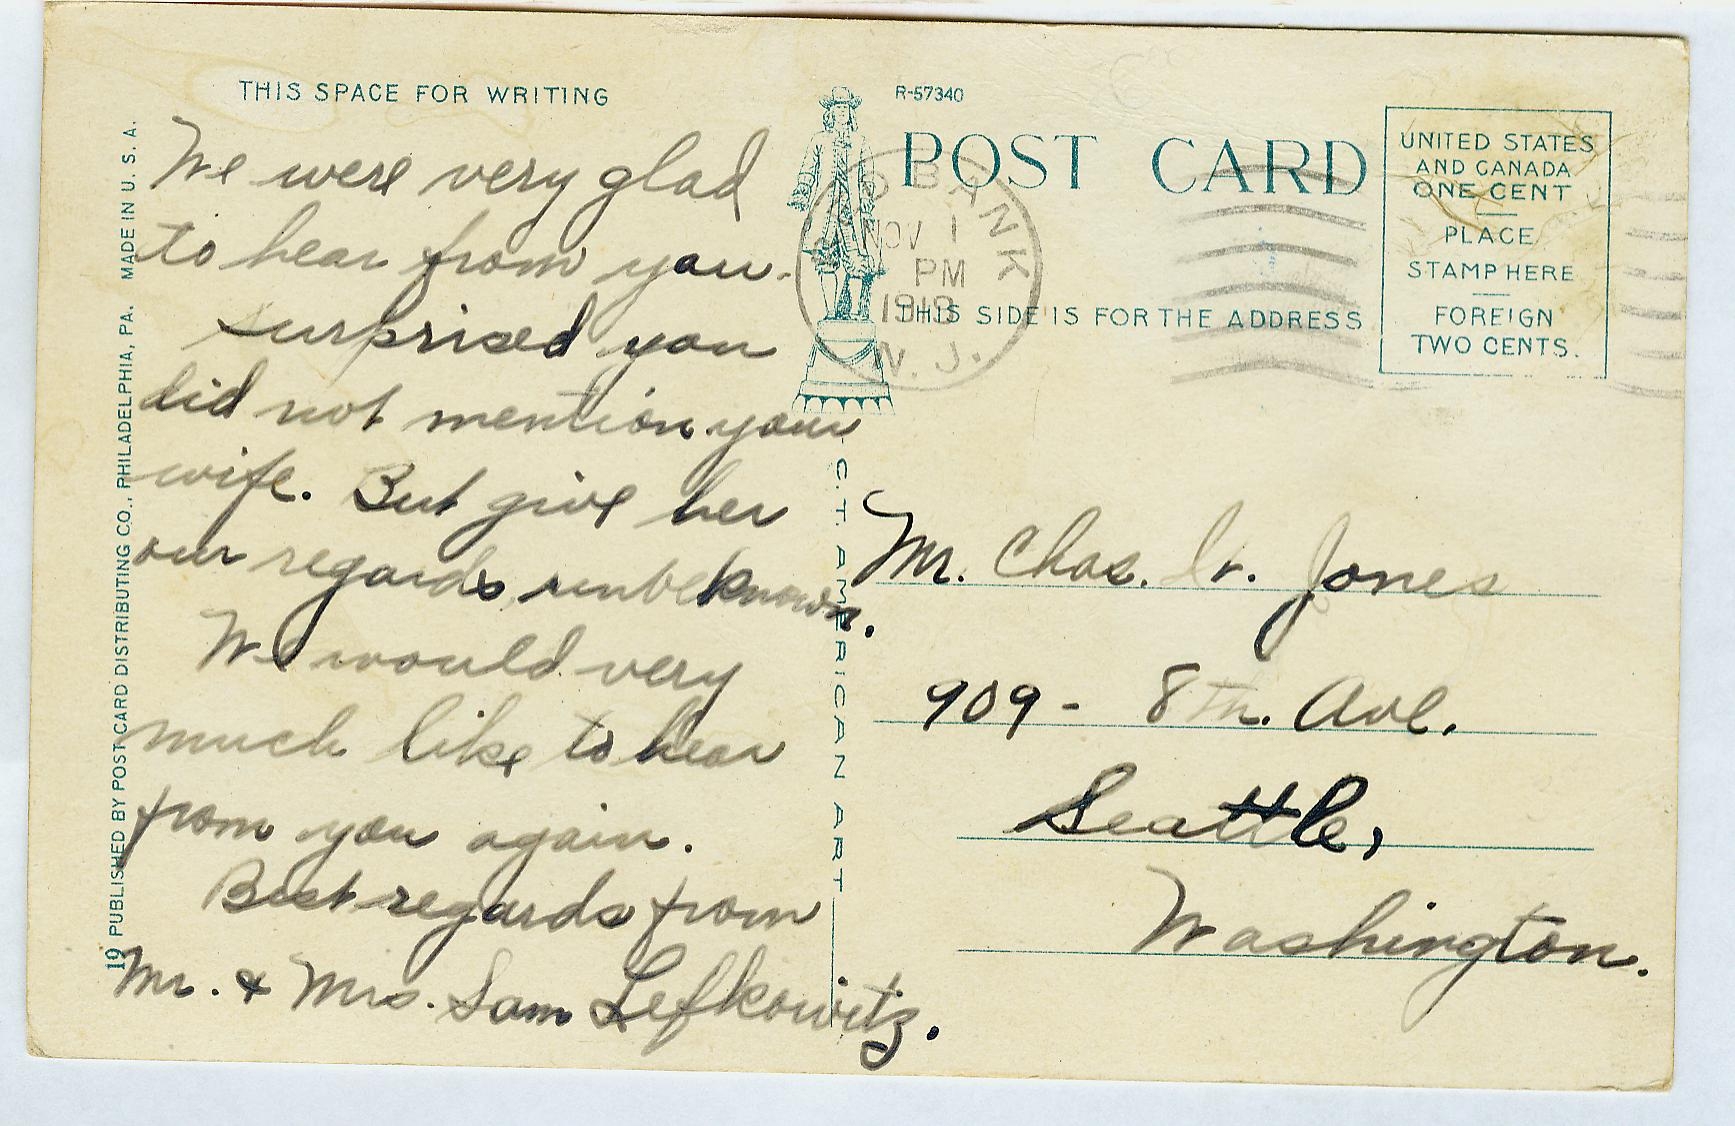 THIS SPACE FOR WRITING
We were very glad
to hear from you.
surprised you
did not mention your
wife. But give her
our regards, unbeknown.
We would very
much like to hear
from you again.
Best regards from
Mr. & Mrs. Sam Lefkowitz.
19 PUBLISHED BY POST CARD DISTRIBUTING CO., PHILADELPHIA, PA. MADE IN U. S. A.
C. T. AMERICAN ART
R-57340
POST CARD
THIS SIDE IS FOR THE ADDRESS
D BANK
NOV 1
PM
N. J.
UNITED STATES
AND CANADA
ONE CENT
PLACE
STAMP HERE
FOREIGN
TWO CENTS.
Mr. Chas. Jones
909 - 8th. Ave.
Seattle,
Washington.